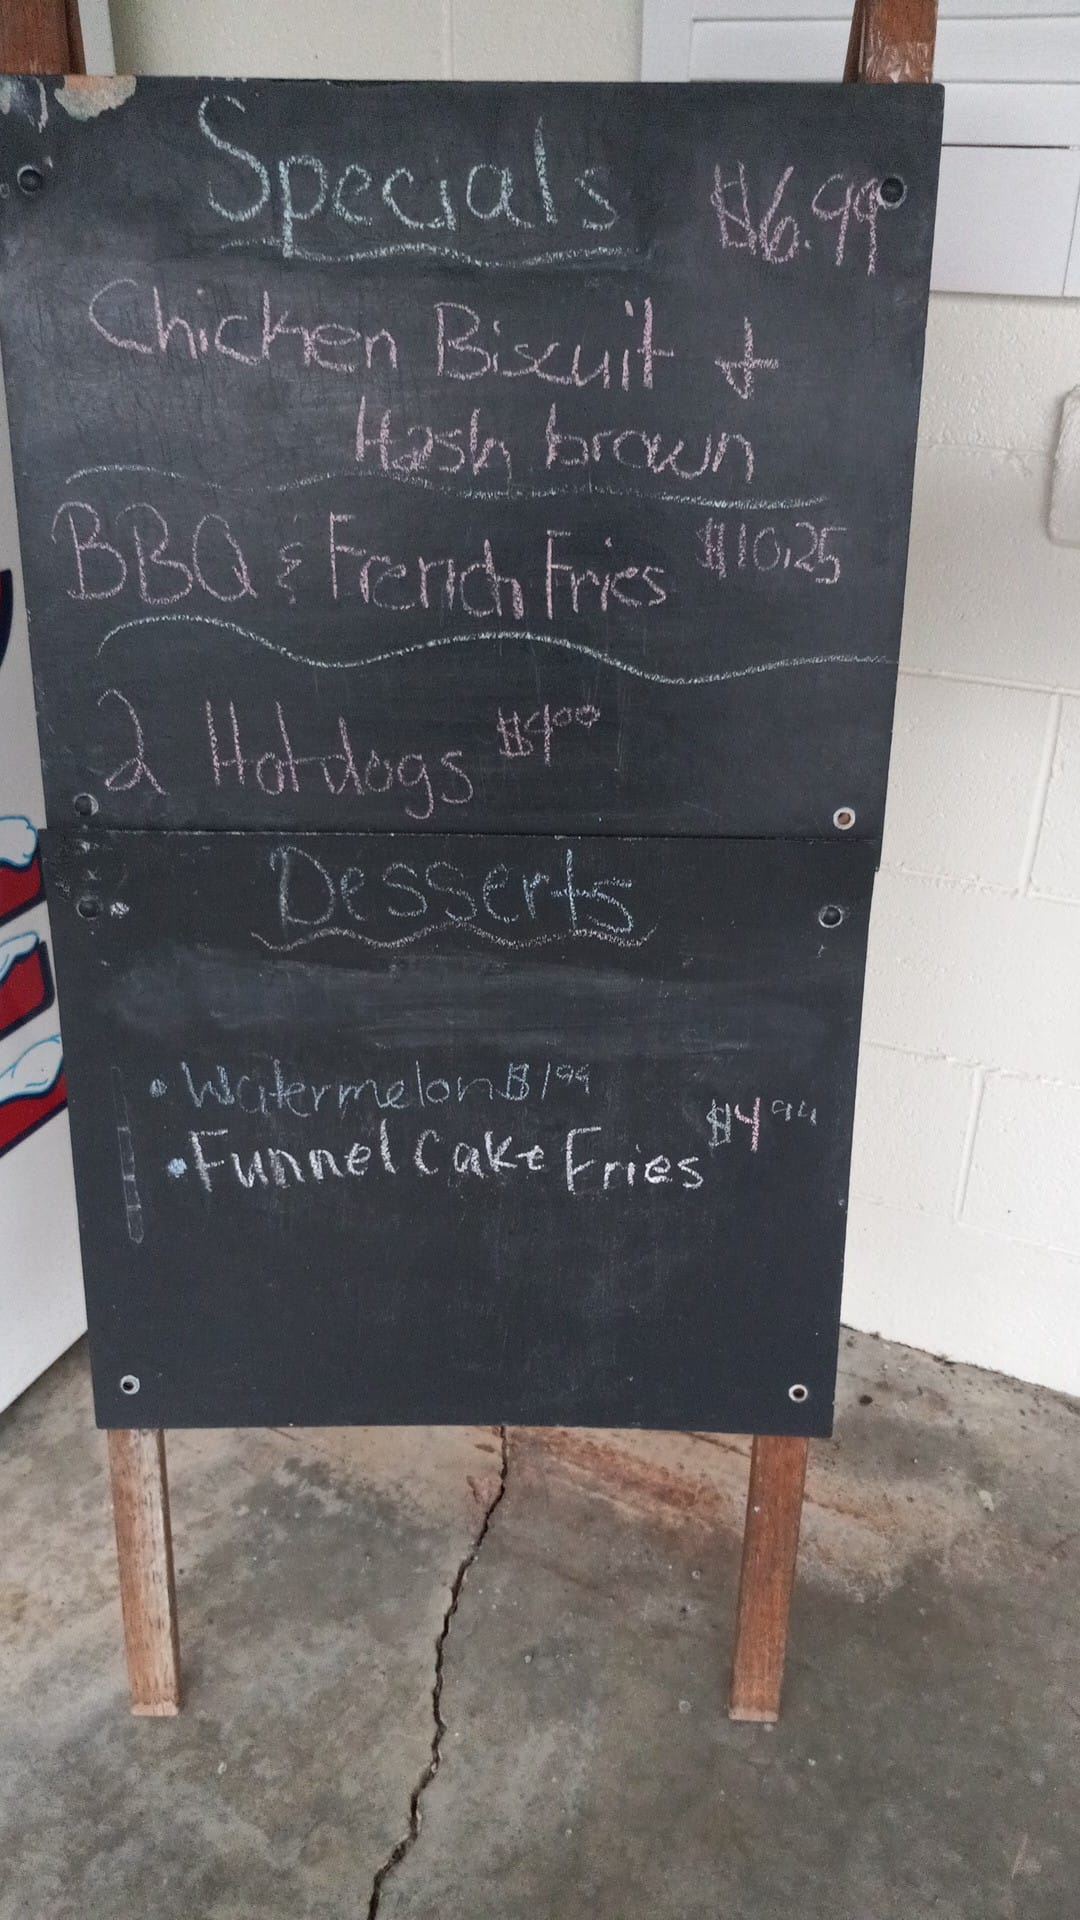 Specials $6.99
Chicken Biscuit +
Hash brown
BBQ & French Fries $10.25
2 Hotdogs $4.00
Desserts
• Watermelon $1.99
• Funnel Cake Fries $4.94